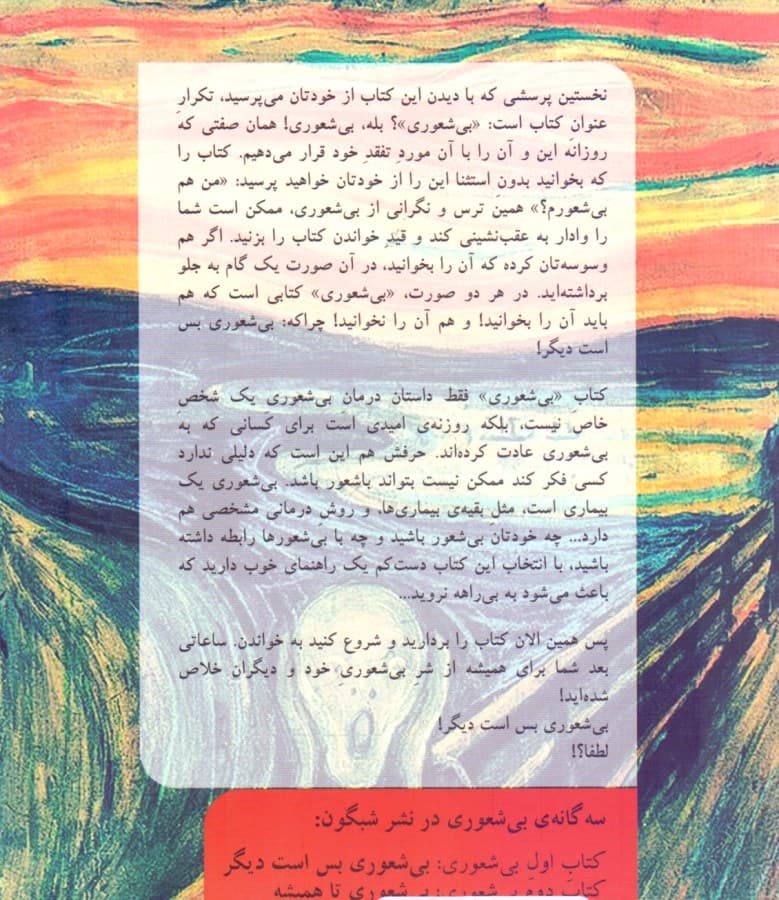 نخستین پرسشی که با دیدن این کتاب از خودتان می‌پرسید، تکرارِ
عنوانِ کتاب است: «بی‌شعوری»؟ بله، بی‌شعوری! همان صفتی که
روزانه این و آن را با آن موردِ تفقدِ خود قرار می‌دهیم. کتاب را
که بخوانید بدونِ استثنا این را از خودتان خواهید پرسید: «من هم
بی‌شعورم؟» همین ترس و نگرانی از بی‌شعوری، ممکن است شما
را وادار به عقب‌نشینی کند و قیدِ خواندن کتاب را بزنید. اگر هم
وسوسه‌تان کرده که آن را بخوانید، در آن صورت یک گام به جلو
برداشته‌اید. در هر دو صورت، «بی‌شعوری» کتابی است که هم
باید آن را بخوانید! و هم آن را نخوانید! چراکه: بی‌شعوری بس
است دیگر!
کتابِ «بی‌شعوری» فقط داستان درمانِ بی‌شعوری یک شخصِ
خاص نیست، بلکه روزنه‌ی امیدی است برای کسانی که به
بی‌شعوری عادت کرده‌اند. حرفش هم این است که دلیلی ندارد
کسی فکر کند ممکن نیست بتواند باشعور باشد. بی‌شعوری یک
بیماری است، مثلِ بقیه‌ی بیماری‌ها، و روشِ درمانی مشخصی هم
دارد... چه خودتان بی‌شعور باشید و چه با بی‌شعورها رابطه داشته
باشید، با انتخاب این کتاب دست‌کم یک راهنمای خوب دارید که
باعث می‌شود به بی‌راهه نروید...
پس همین الان کتاب را بردارید و شروع کنید به خواندن. ساعاتی
بعد شما برای همیشه از شرِ بی‌شعوریِ خود و دیگران خلاص
شده‌اید!
بی‌شعوری بس است دیگر!
لطفا؟!
سه گانه‌ی بی‌شعوری در نشر شبگون:
کتابِ اولِ بی‌شعوری: بی‌شعوری بس است دیگر
کتابِ دومِ بی‌شعوری: بی‌شعوری تا همیشه